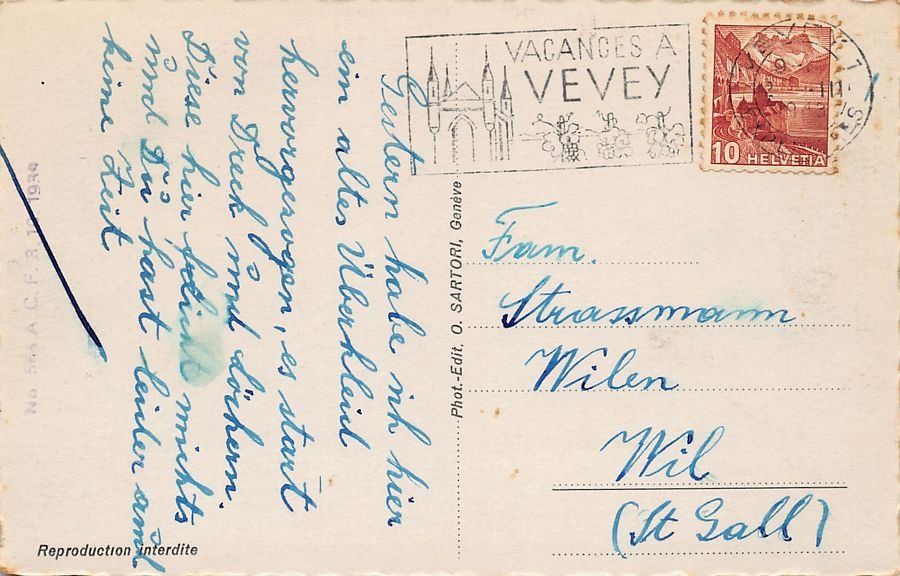 Gestern habe ich hier
ein altes Überkleid
hervorgezogen, es starrt
von Dreck und Löchern.
Diese hier flickt nichts
und Du hast leider auch
keine Zeit
Reproduction interdite
Phot.-Edit. O. SARTORI, Genève
VACANCES A
VEVEY
10 HELVETIA
Fam.
Strassmann
Wilen
Wil
(St Gall)